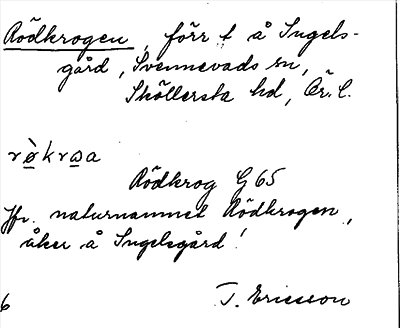 Rödkrogen, förr t å Ingels-
gård, Svennevads sn,
Sköllersta hd, Ör. l.
rø̀krωa
Rödkrog G 65
Jfr. naturnamnet Rödkrogen,
åker å Ingelsgård!
6
T. Ericsson